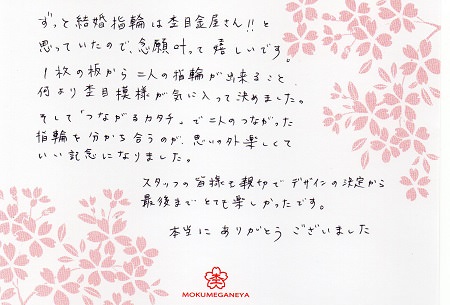 ずっと結婚指輪は杢目金屋さん!!と
思っていたので、念願叶って嬉しいです。
1枚の板から二人の指輪が出来ること
何より杢目模様が気に入って決めました。
そして「つながるカタチ」で二人のつながった
指輪を分かち合うのが、思いの外楽しくて
いい記念になりました。
スタッフの皆様も親切でデザインの決定から
最後までとても楽しかったです。
本当にありがとうございました
MOKUMEGANEYA